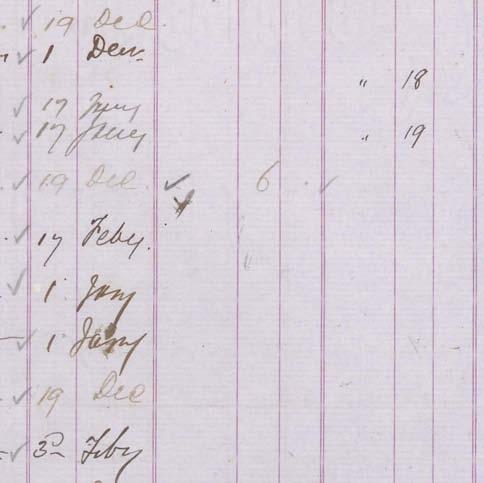 ✓ 19 Dec
✓ 1 Decr
" 18
✓ 17 Jany
✓ 17 Jany " 19
✓ 19 Dec ✓ 6 ✓
✓ 17 Feby.
"
✓ 1 Jany
✓ 1 Jany
✓ 19 Dec
✓ 3rd Feby